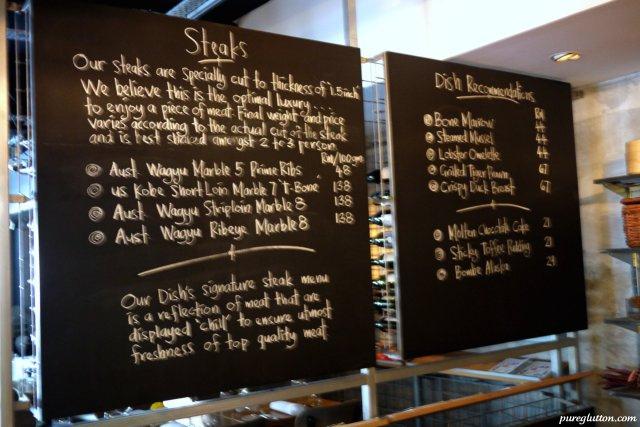 Steaks
Our Steaks are Specially cut to thickness of 1.5 inch
We believe this is the optimal luxury...
to enjoy a piece of meat. Final weight and price
varies according to the actual cut of the steak
and is best shared amongst 2 to 3 person
RM/100gm
Aust Wagyu Marble 5 Prime Ribs 48
US Kobe Short Loin Marble 7 "T-Bone" 138
Aust Wagyu Striploin Marble 8 138
Aust Wagyu Ribeye Marble 8 138
Our Dish's signature steak menu
is a reflection of meat that are
displayed "chill" to ensure utmost
freshness of top quality meat
Dish Recommendations
RM
Bone Marrow 44
Steamed Mussel 44
Lobster Omelette 44
Grilled Tiger Prawn 67
Crispy Duck Breast 67
Molten Chocolate Cake 21
Sticky Toffee Pudding 21
Bombe Alaska 29
pureglutton.com